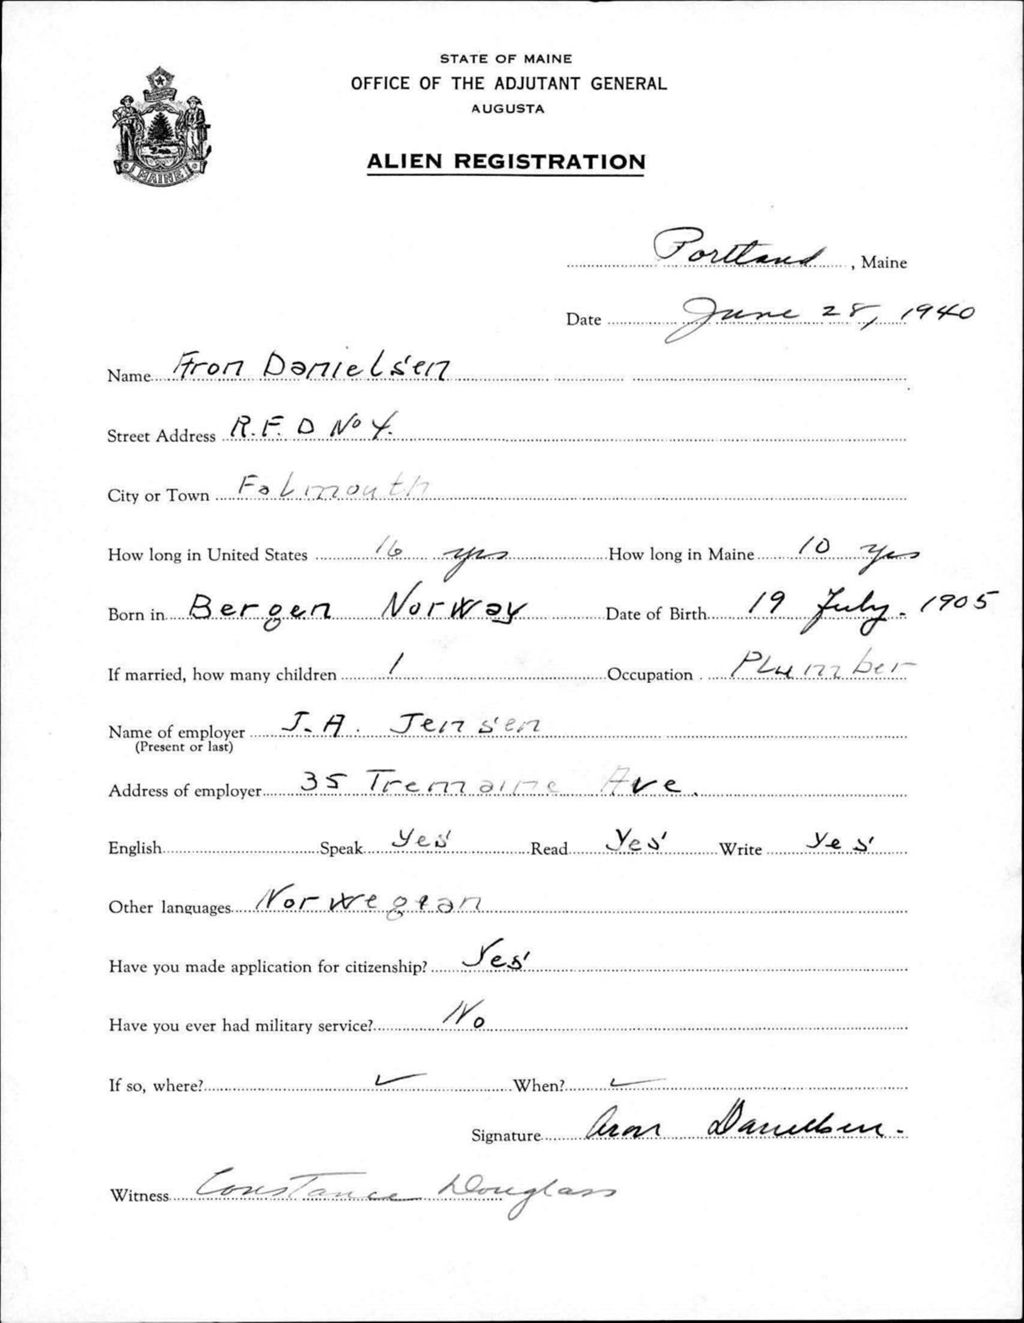 STATE OF MAINE
OFFICE OF THE ADJUTANT GENERAL
AUGUSTA
ALIEN REGISTRATION
MAINE
Portland, Maine
Date June 28, 1940
Name Aron Danielsen
Street Address R.F.D No 4.
City or Town Falmouth
How long in United States 16 yrs How long in Maine 10 yrs
Born in Bergen Norway Date of Birth 19 July. 1905
If married, how many children 1 Occupation Plumber
Name of employer J.A. Jensen
(Present or last)
Address of employer 35 Tremaine Ave.
English Speak Yes Read Yes Write Yes
Other languages Norwegean
Have you made application for citizenship? Yes
Have you ever had military service? No
If so, where? ✓ When? ✓
Signature Aron Danielsen.
Witness Constance Douglass